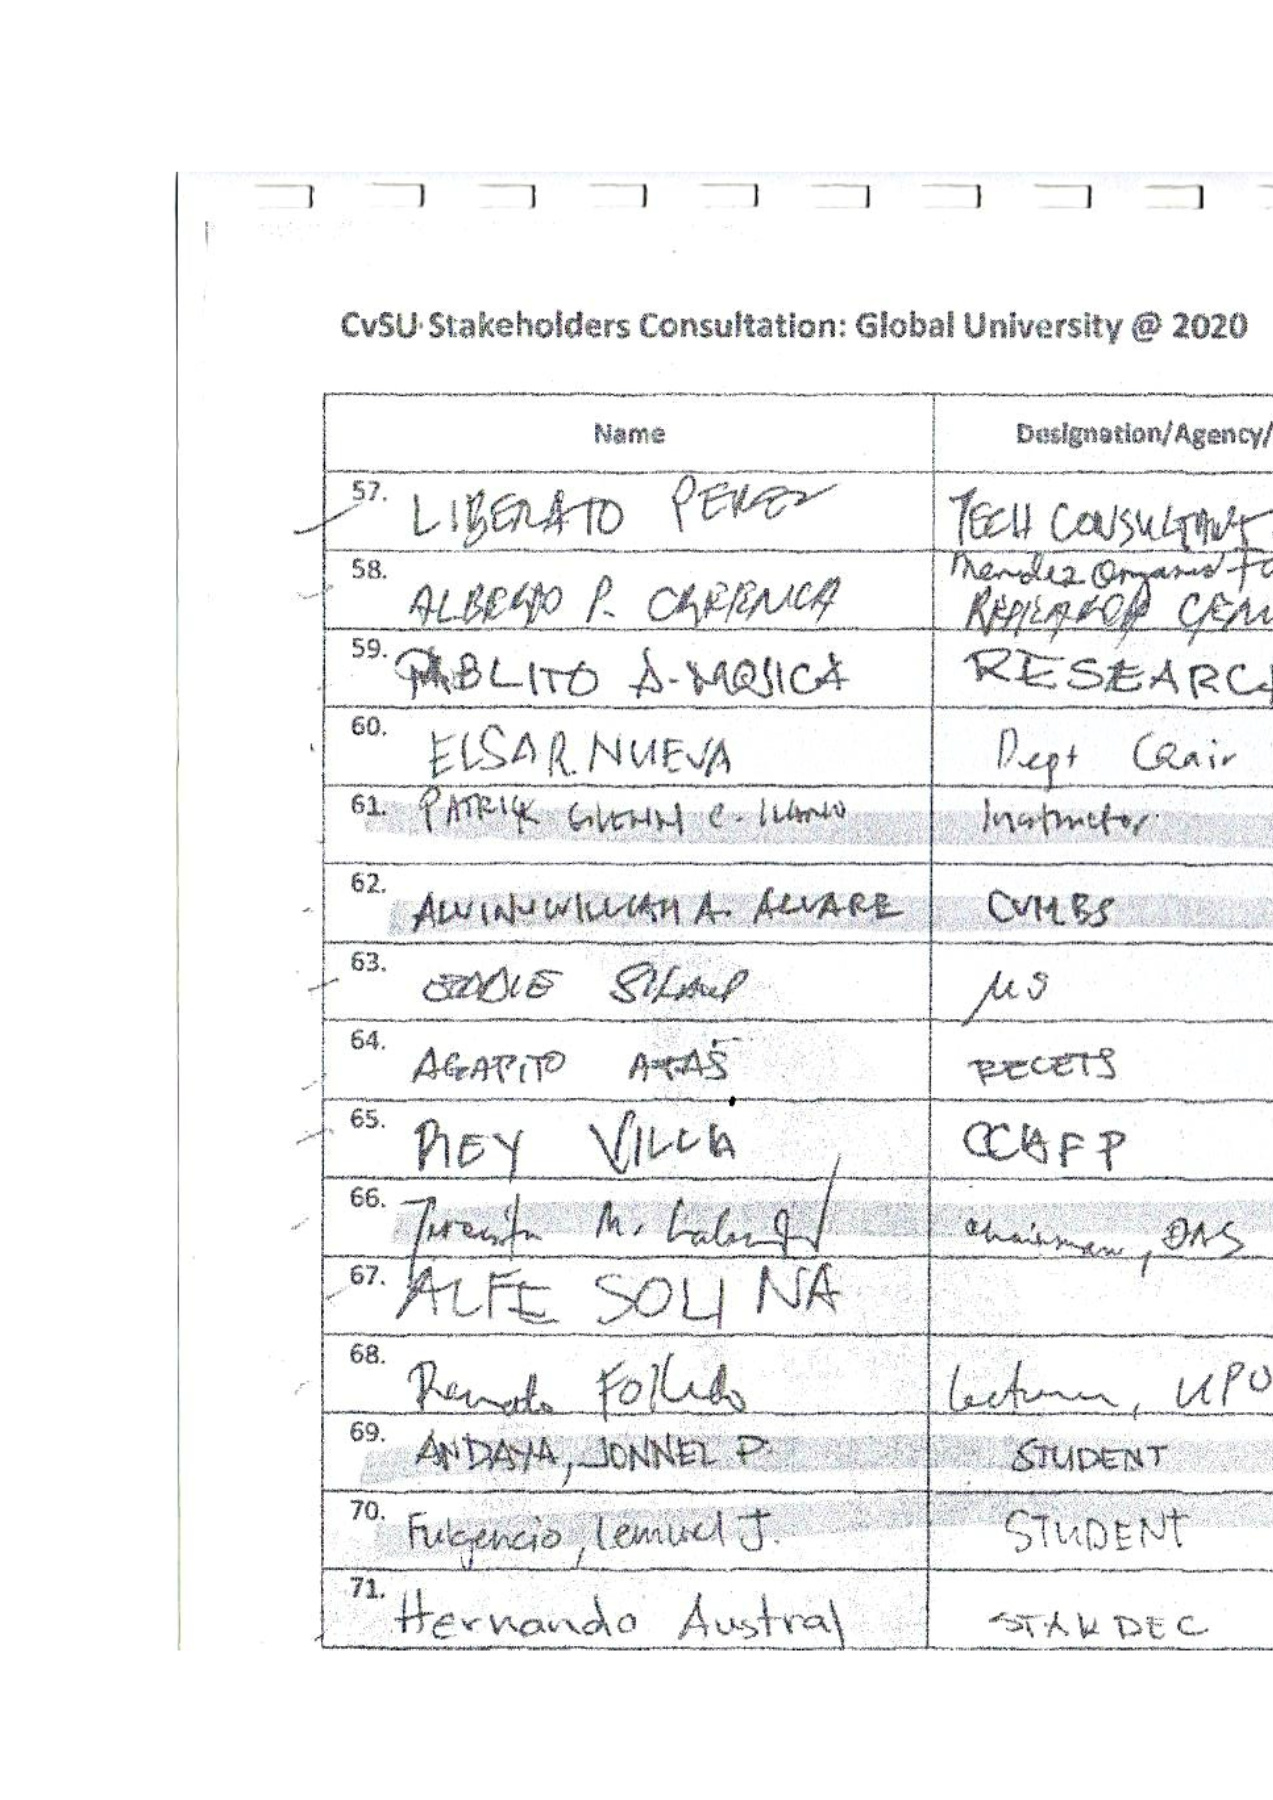 CvSU Stakeholders Consultation: Global University @ 2020
Name Designation/Agency/
57. LIBERATO PEREZ TECH CONSULTANT
58. P. Mendez Organic
59. PABLITO A. MOJICA RESEARC
60. ELSA R. NUEVA Dept Chair
61. PATRICK GLENN C. ILANO Instructor
62. ALVIN WILLIAM A. ALVARE CVMBS
63. EDDIE SILAN
64. AGAPITO RECETS
65. REY VILLA CCAFP
66. M. Chairman, DAS
67. ALFE SOLINA
68. Renato Folledo Lecturer, UPO
69. ANDAYA, JONNEL P. STUDENT
70. Fulgencio, Lemuel J. STUDENT
71. Hernando Austral STAKDEC